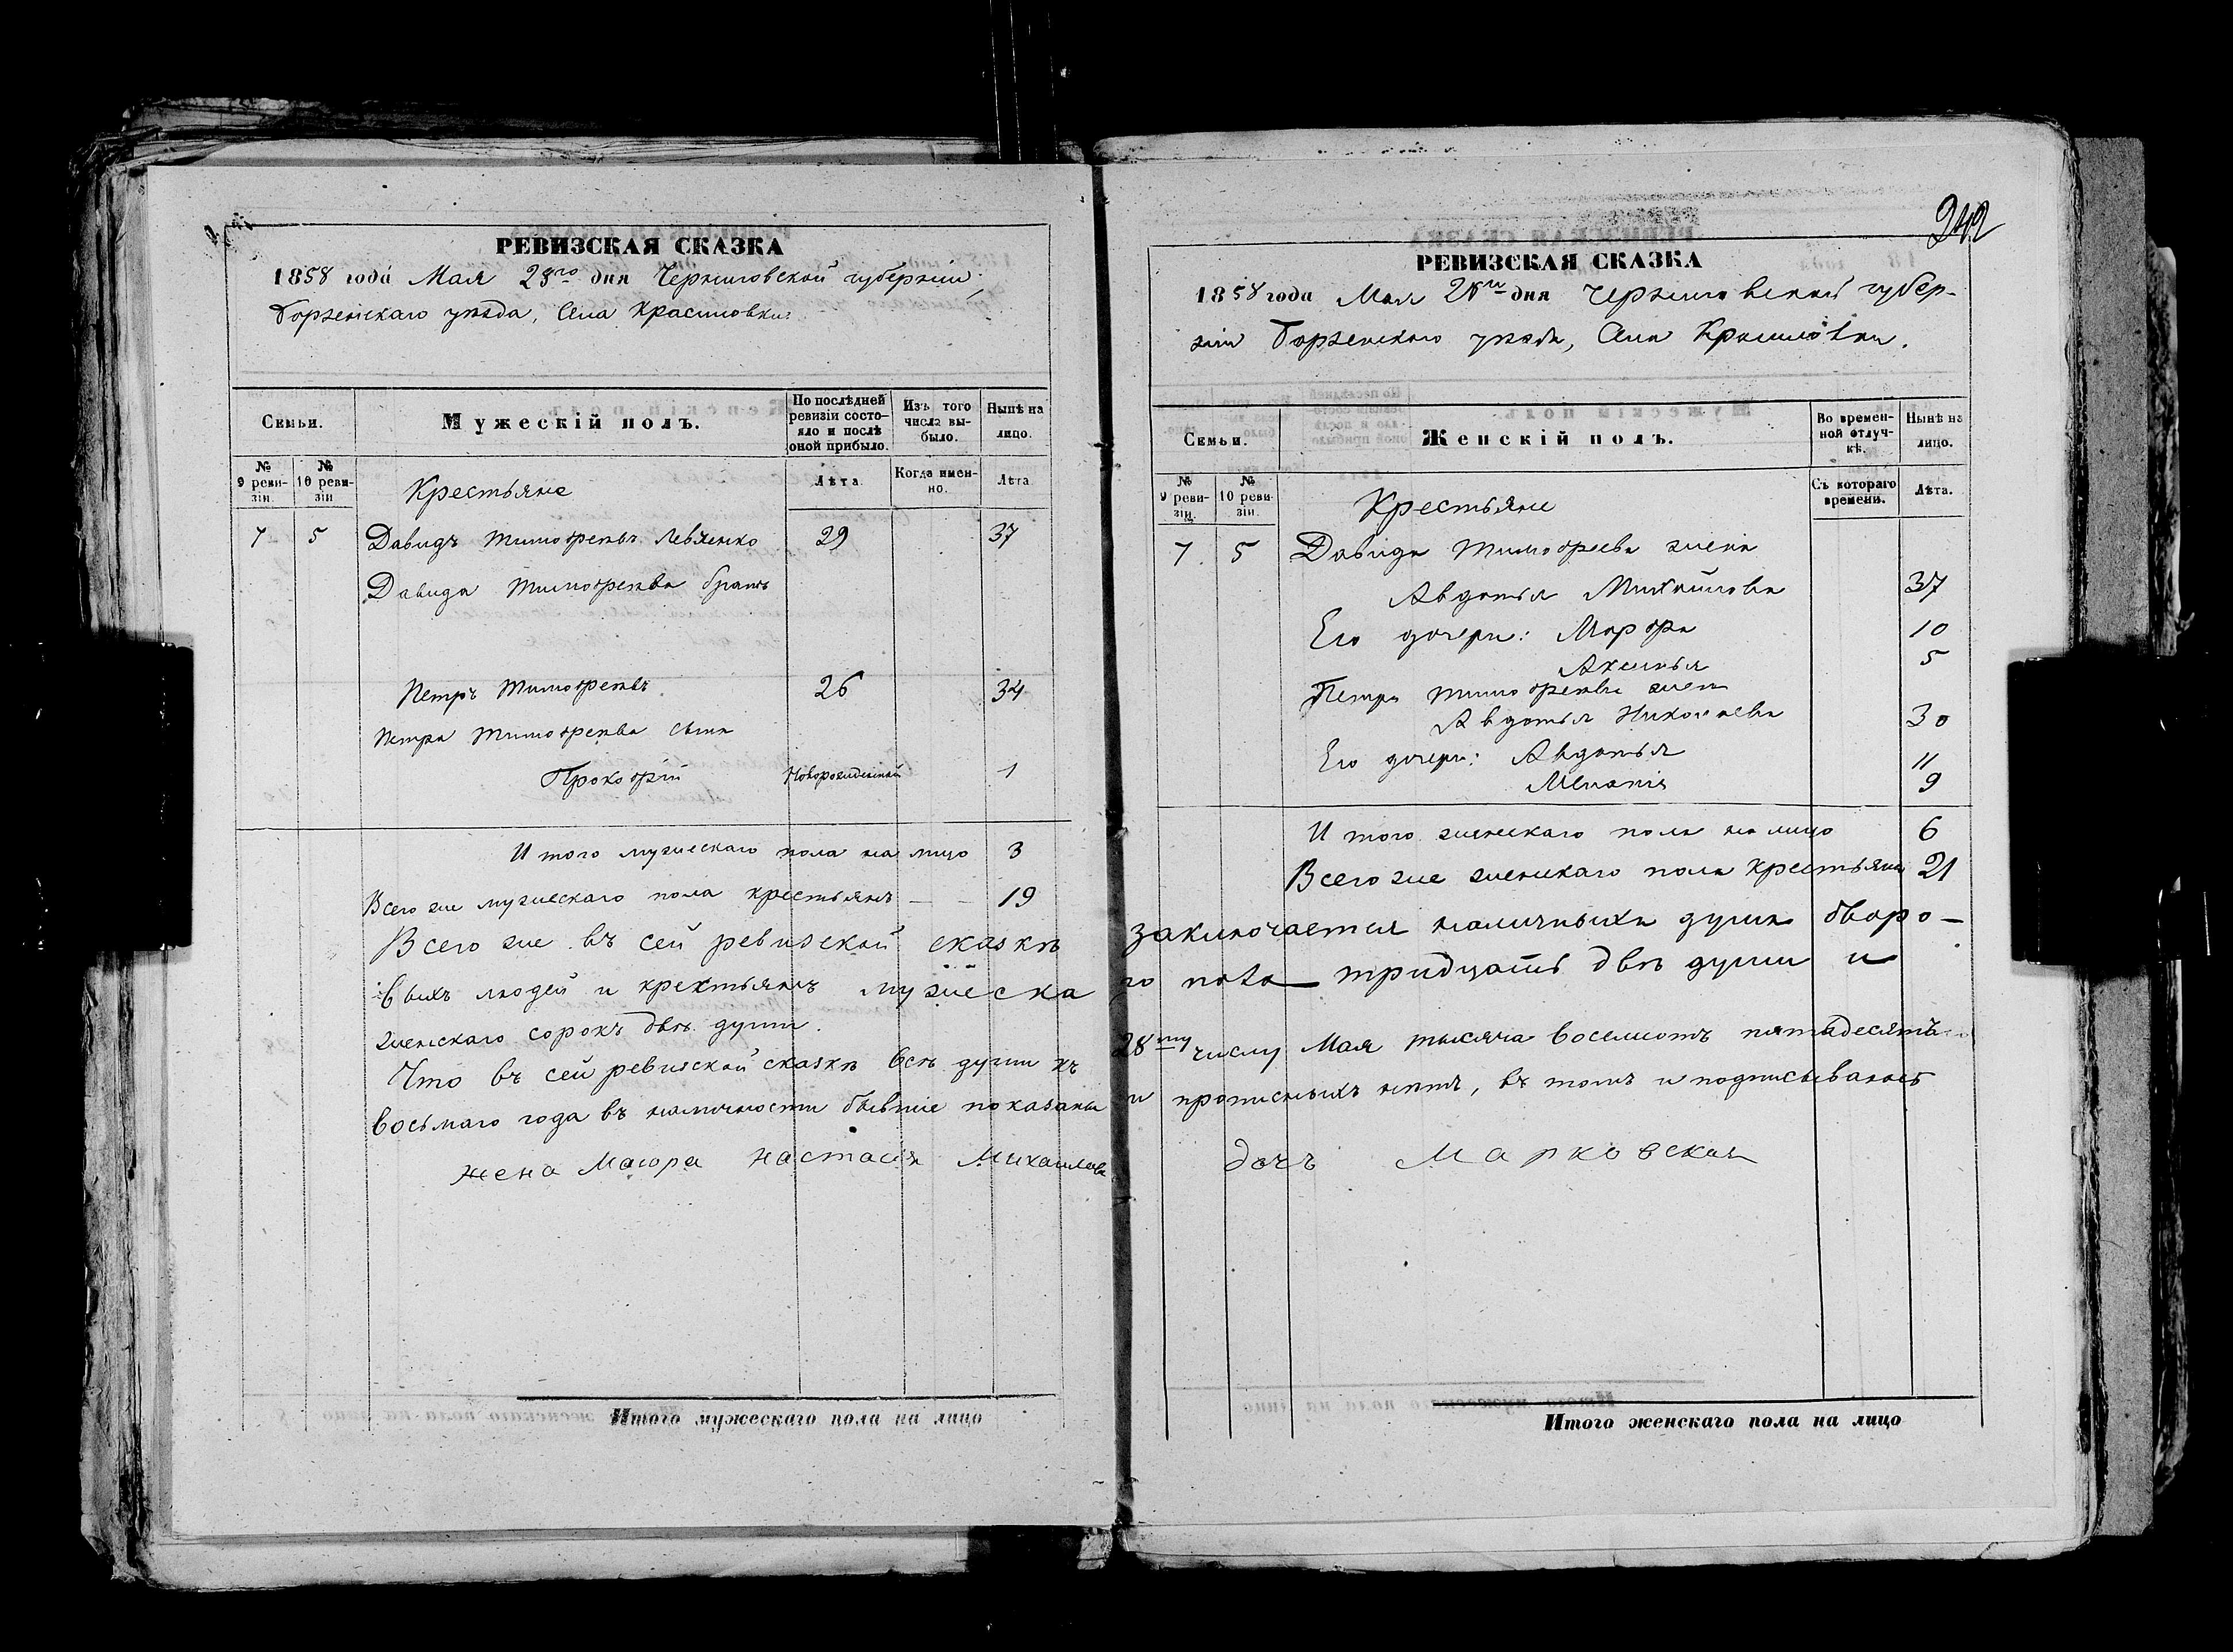 РЕВИЗСКАЯ СКАЗКА
1858 года Мая 28го дня Черниговской губерніи,
Борзенскаго уѣзда, Села Красиловки.
Семьи.
Мужескій полъ.
По послѣдней ревизіи состояло и послѣ оной прибыло.
Изъ того числа выбыло.
Нынѣ на лицо.
№ 9 ревизіи.
№ 10 ревизіи
Крестьяне
Лѣта.
Когда именно.
Лѣта.
7 5 Давидъ Тимофеевъ Левченко 29 37
Давида Тимофеева братъ
Петръ Тимофеевъ 26 34
Петра Тимофеева сынъ
Прокофій Новорожденный 1
Итого мужескаго пола на лицо 3
Всего же мужескаго пола крестьянъ — — 19
Всего же въ сей ревизской сказкѣ
выхъ людей и крестьянъ мужеска
женскаго сорокъ двѣ души.
Что въ сей ревизской сказкѣ всѣ души къ
восьмаго года въ наличности бывшіе показаны
жена Маіора Настасія Михаилова
Итого мужескаго пола на лицо
242
РЕВИЗСКАЯ СКАЗКА
1858 года Мая 28го дня Черниговской губер-
ніи Борзенскаго уѣзда, Села Красиловки.
Семьи.
Женскій полъ.
Во временной отлучкѣ.
Нынѣ на лицо.
№ 9 ревизіи.
№ 10 ревизіи.
Крестьяне
Съ котораго времени.
Лѣта.
7. 5 Давида Тимофеева жена
Авдотья Михайлова 37
Его дочери: Марфа 10
Аксинья 5
Петра Тимофеева жена
Авдотья Николаева 30
Его дочери: Авдотья 11
Меланія 9
Итого женскаго пола на лицо 6
Всего же женскаго пола крестьянъ 21
заключается наличныхъ душъ дворо-
го пола тридцать двѣ души и
28му числу Мая тысяча восемсотъ пятадесятъ
и прописныхъ нетъ, въ томъ и подписываюсь
дочъ Марковская
Итого женскаго пола на лицо